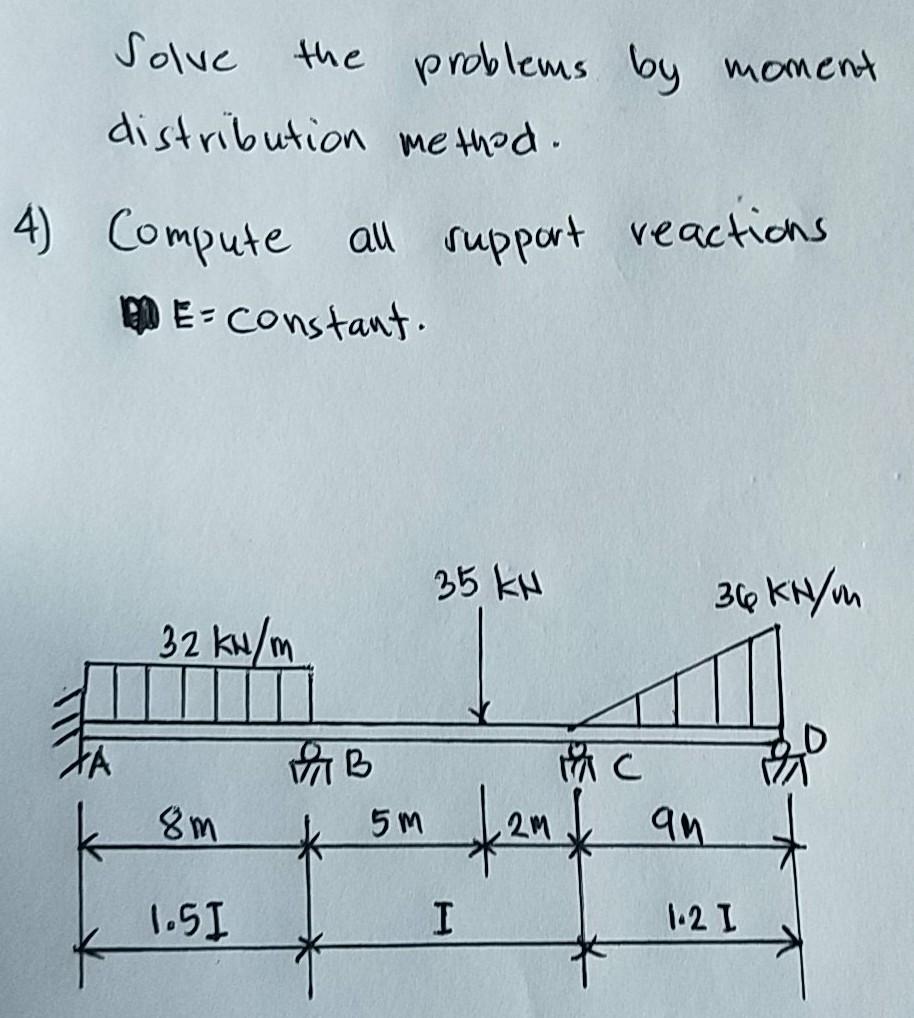 Solve the problems by moment
distribution method.
4) Compute all support reactions
E = constant.
35 kN
36 KN/m
32 kN/m
A B C D
8m 5m 2m 9m
1.5I I 1.2 I